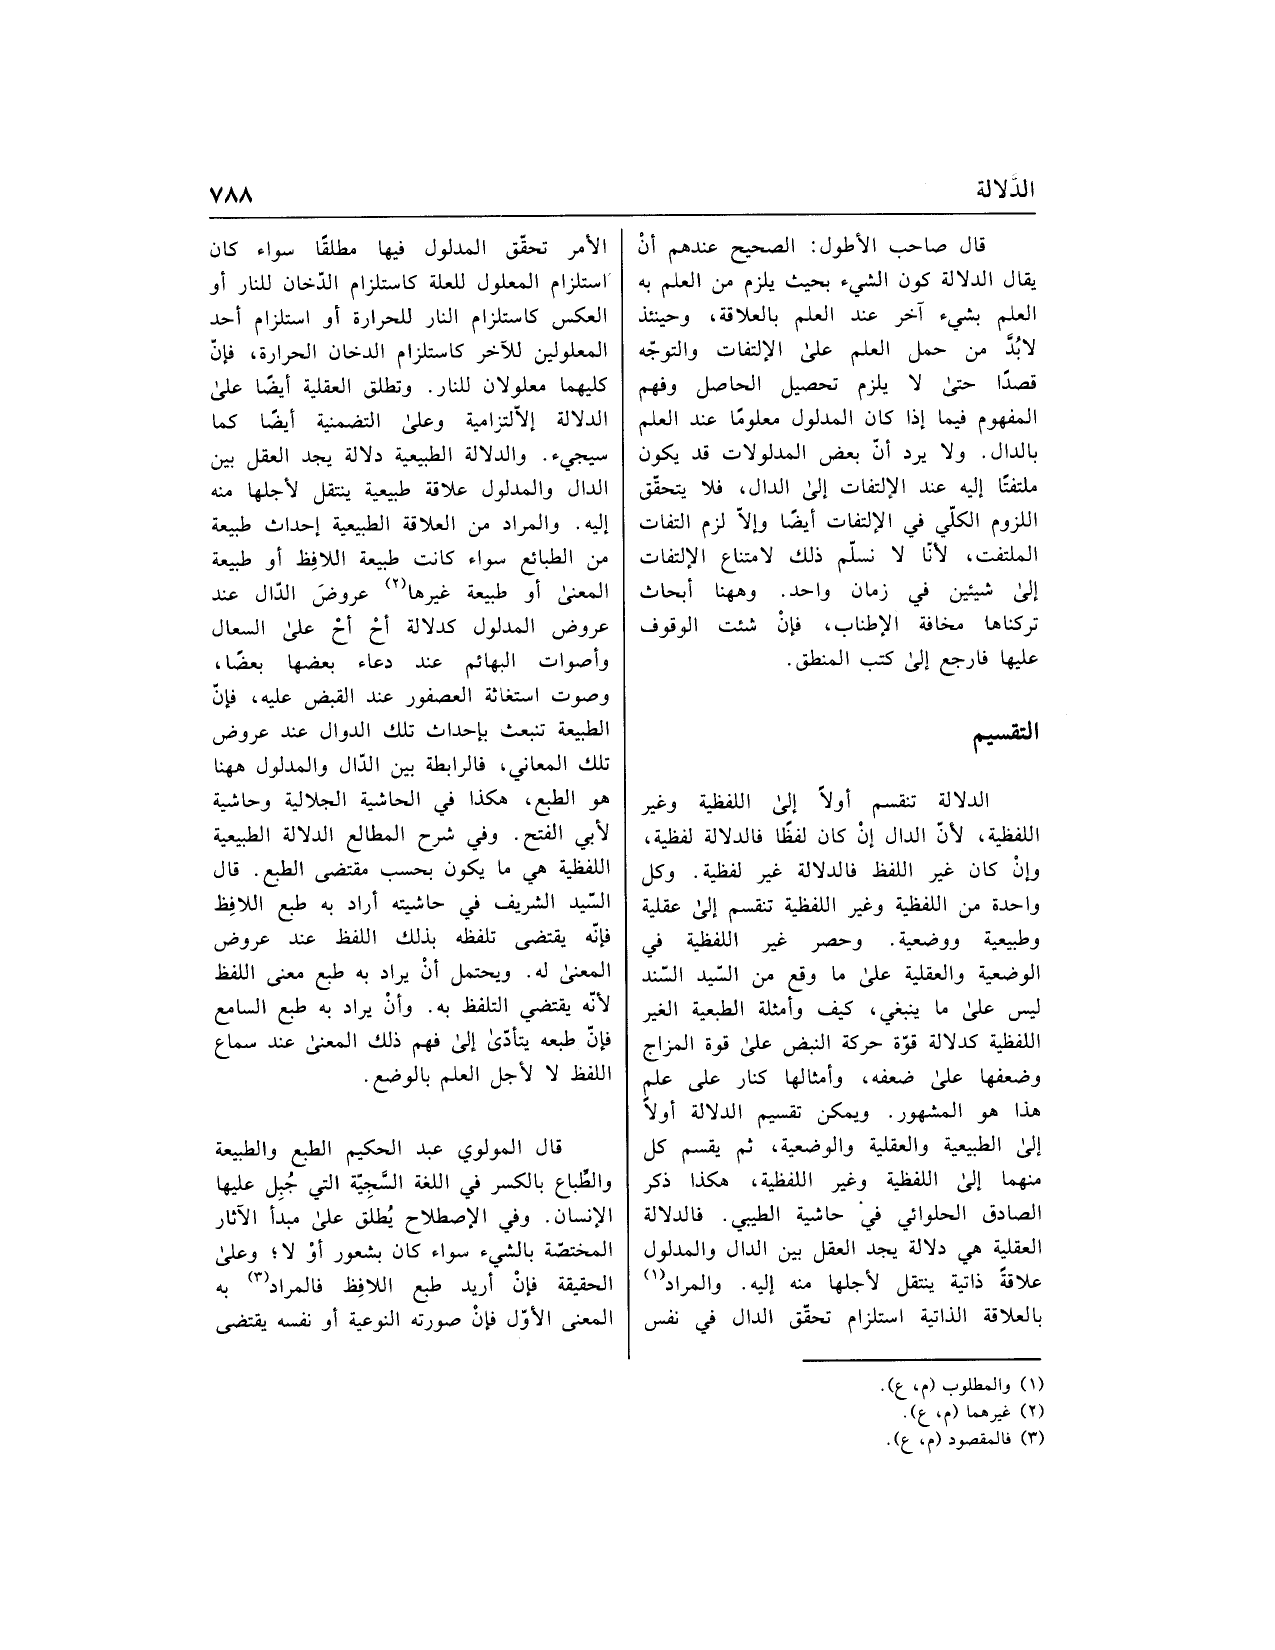 الدَّلالة
٧٨٨
قال صاحب الأطول: الصحيح عندهم أنْ
يقال الدلالة كون الشيء بحيث يلزم من العلم به
العلم بشيء آخر عند العلم بالعلاقة، وحينئذ
لابُدَّ من حمل العلم علىٰ الإلتفات والتوجّه
قصدًا حتىٰ لا يلزم تحصيل الحاصل وفهم
المفهوم فيما إذا كان المدلول معلومًا عند العلم
بالدال. ولا يرد أنّ بعض المدلولات قد يكون
ملتفتًا إليه عند الإلتفات إلىٰ الدال، فلا يتحقّق
اللزوم الكلّي في الإلتفات أيضًا وإلاّ لزم التفات
الملتفت، لأنّا لا نسلّم ذلك لامتناع الإلتفات
إلىٰ شيئين في زمان واحد. وههنا أبحاث
تركناها مخافة الإطناب، فإنْ شئت الوقوف
عليها فارجع إلىٰ كتب المنطق.
التقسيم
الدلالة تنقسم أولاً إلىٰ اللفظية وغير
اللفظية، لأنّ الدال إنْ كان لفظًا فالدلالة لفظية،
وإنْ كان غير اللفظ فالدلالة غير لفظية. وكل
واحدة من اللفظية وغير اللفظية تنقسم إلىٰ عقلية
وطبيعية ووضعية. وحصر غير اللفظية في
الوضعية والعقلية علىٰ ما وقع من السّيد السّند
ليس علىٰ ما ينبغي، كيف وأمثلة الطبعية الغير
اللفظية كدلالة قوّة حركة النبض علىٰ قوة المزاج
وضعفها علىٰ ضعفه، وأمثالها كنار على علم
هذا هو المشهور. ويمكن تقسيم الدلالة أولاً
إلىٰ الطبيعية والعقلية والوضعية، ثم يقسم كل
منهما إلىٰ اللفظية وغير اللفظية، هكذا ذكر
الصادق الحلوائي في حاشية الطيبي. فالدلالة
العقلية هي دلالة يجد العقل بين الدال والمدلول
علاقةً ذاتية ينتقل لأجلها منه إليه. والمراد(١)
بالعلاقة الذاتية استلزام تحقّق الدال في نفس
الأمر تحقّق المدلول فيها مطلقًا سواء كان
استلزام المعلول للعلة كاستلزام الدّخان للنار أو
العكس كاستلزام النار للحرارة أو استلزام أحد
المعلولين للآخر كاستلزام الدخان الحرارة، فإنّ
كليهما معلولان للنار. وتطلق العقلية أيضًا علىٰ
الدلالة الإلتزامية وعلىٰ التضمنية أيضًا كما
سيجيء. والدلالة الطبيعية دلالة يجد العقل بين
الدال والمدلول علاقة طبيعية ينتقل لأجلها منه
إليه. والمراد من العلاقة الطبيعية إحداث طبيعة
من الطبائع سواء كانت طبيعة اللافِظ أو طبيعة
المعنىٰ أو طبيعة غيرها(٢) عروضَ الدّال عند
عروض المدلول كدلالة أخْ أخْ علىٰ السعال
وأصوات البهائم عند دعاء بعضها بعضًا،
وصوت استغاثة العصفور عند القبض عليه، فإنّ
الطبيعة تنبعث بإحداث تلك الدوال عند عروض
تلك المعاني، فالرابطة بين الدّال والمدلول ههنا
هو الطبع، هكذا في الحاشية الجلالية وحاشية
لأبي الفتح. وفي شرح المطالع الدلالة الطبيعية
اللفظية هي ما يكون بحسب مقتضى الطبع. قال
السّيد الشريف في حاشيته أراد به طبع اللافِظ
فإنّه يقتضى تلفظه بذلك اللفظ عند عروض
المعنىٰ له. ويحتمل أنْ يراد به طبع معنى اللفظ
لأنّه يقتضي التلفظ به. وأنْ يراد به طبع السامع
فإنّ طبعه يتأدّىٰ إلىٰ فهم ذلك المعنىٰ عند سماع
اللفظ لا لأجل العلم بالوضع.
قال المولوي عبد الحكيم الطبع والطبيعة
والطِّباع بالكسر في اللغة السَّجِيّة التي جُبِل عليها
الإنسان. وفي الإصطلاح يُطلق علىٰ مبدأ الآثار
المختصّة بالشيء سواء كان بشعور أوْ لا؛ وعلىٰ
الحقيقة فإنْ أريد طبع اللافِظ فالمراد(٣) به
المعنى الأوّل فإنْ صورته النوعية أو نفسه يقتضى
(١) والمطلوب (م، ع).
(٢) غيرهما (م، ع).
(٣) فالمقصود (م، ع).